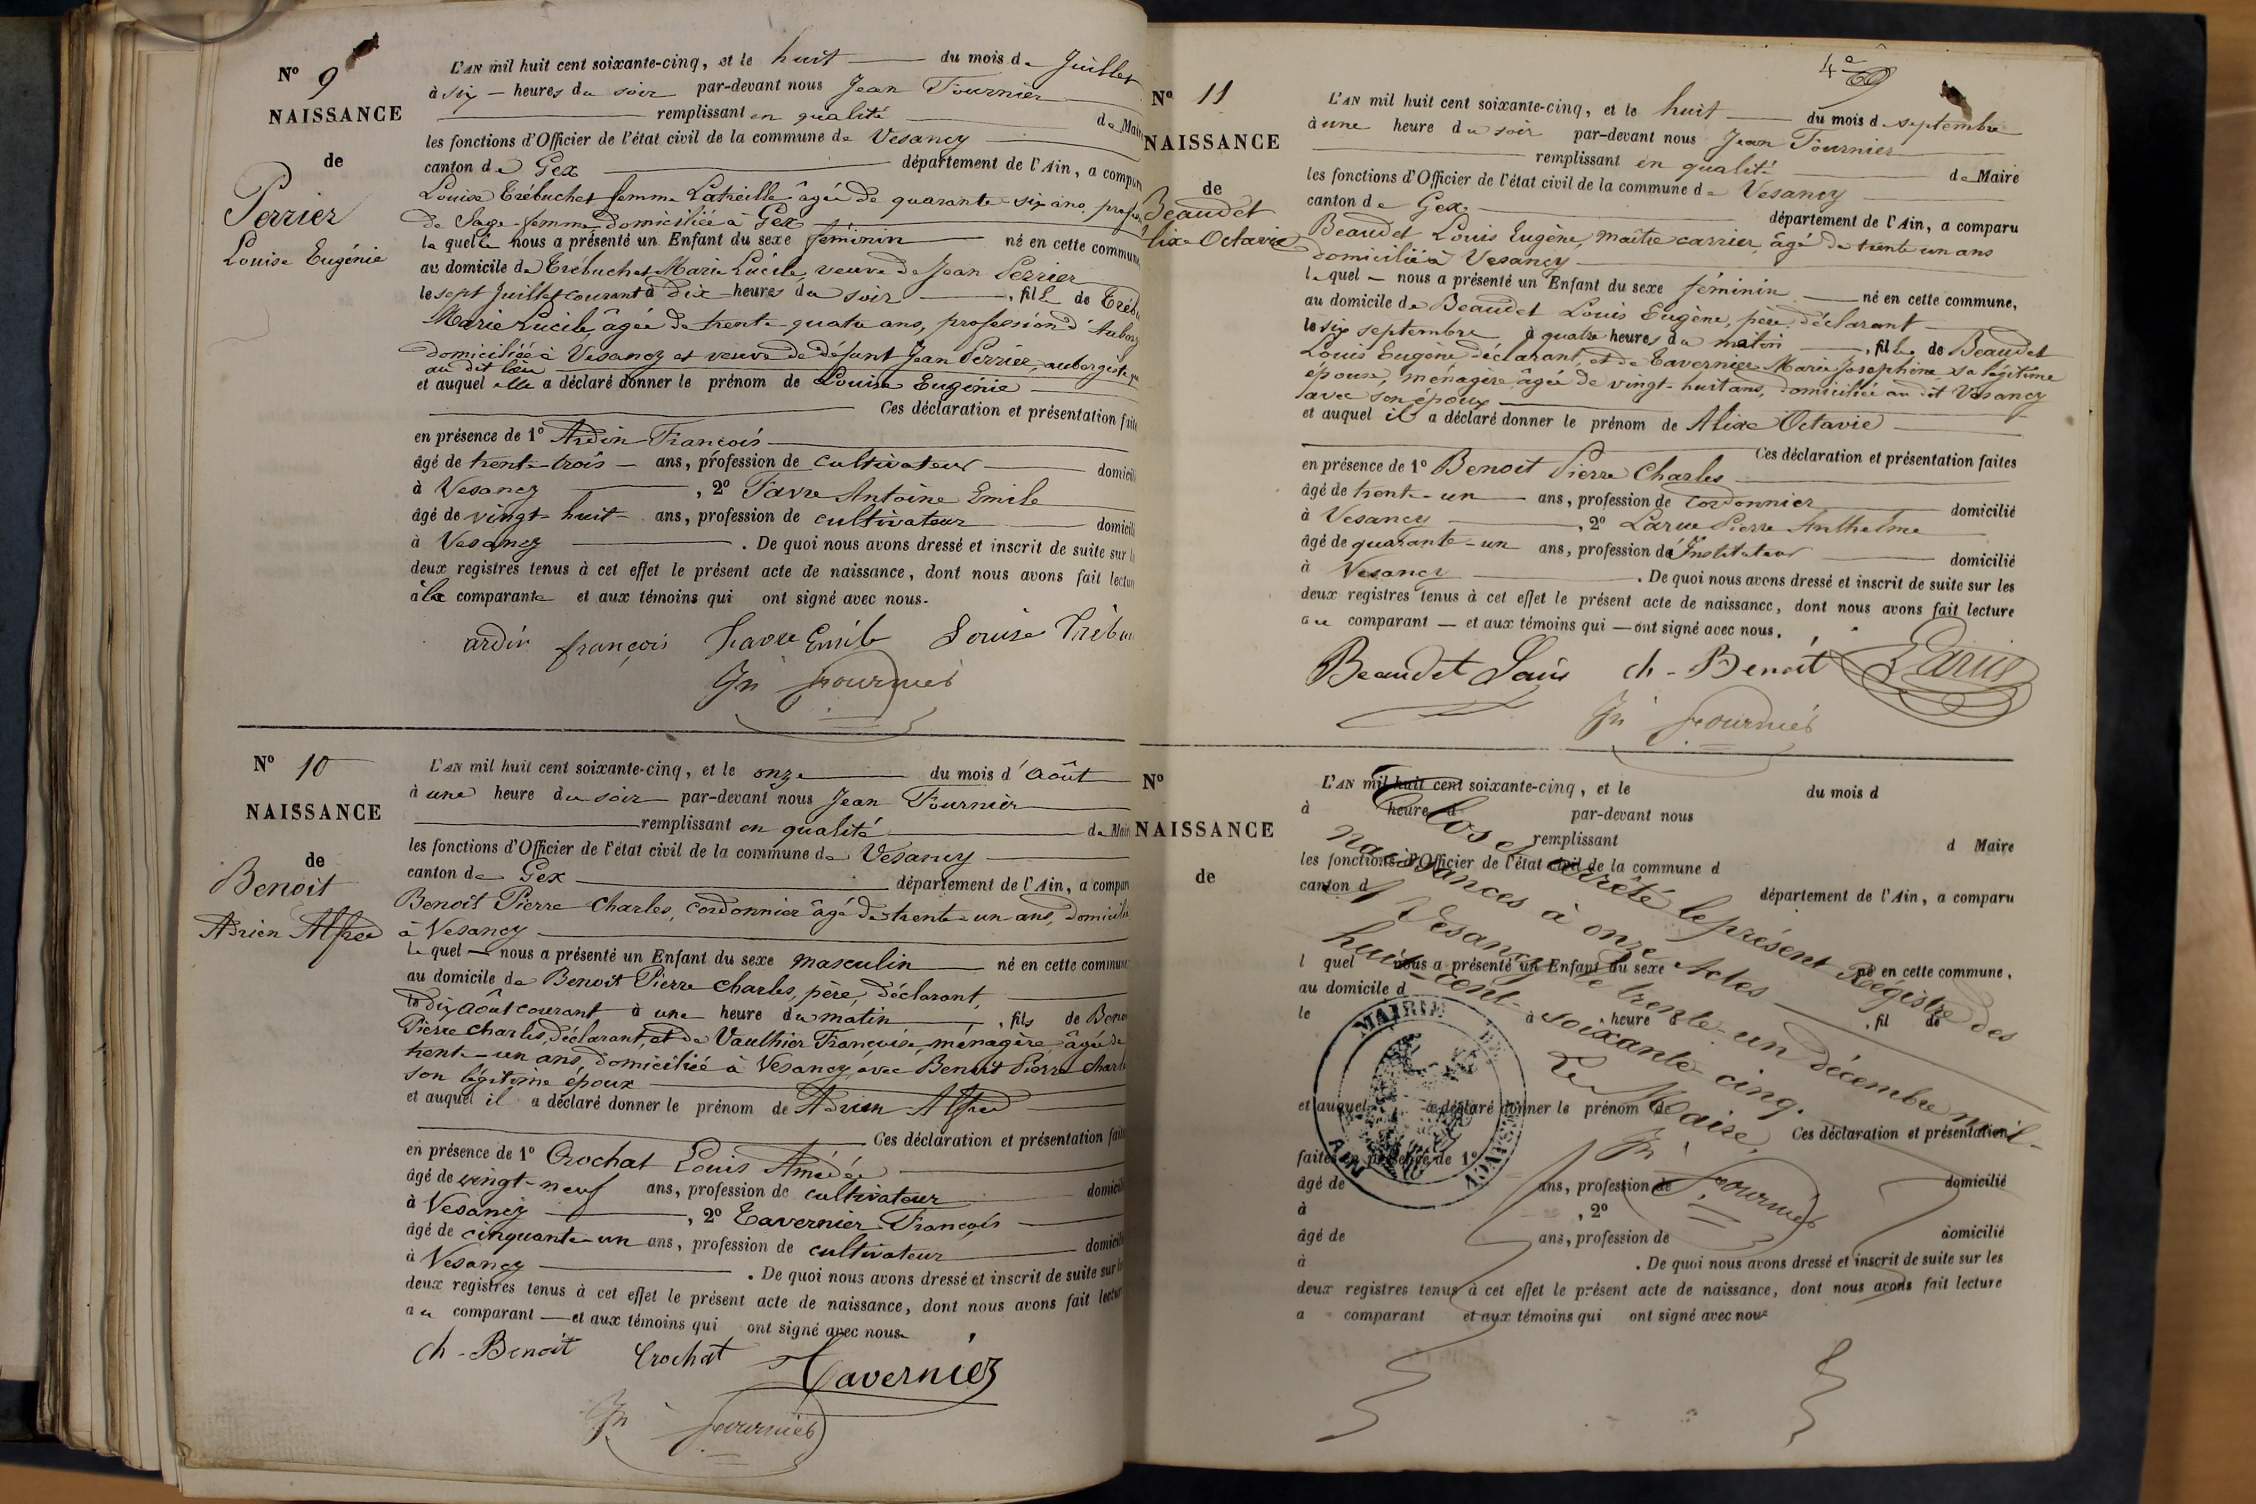 Nº 9
NAISSANCE
de
Perrier
Louise Eugénie
L'AN mil huit cent soixante-cinq, et le huit du mois de Juillet
à six heures du soir par-devant nous Jean Fournier
remplissant en qualité de Maire
les fonctions d'Officier de l'état civil de la commune de Vesancy
canton de Gex département de l'Ain, a compar
Louise Trébuchet femme Latreille âgée de quarante-six ans, profes
de Sage-femme domiciliée à Gex
laquelle nous a présenté un Enfant du sexe féminin né en cette commune,
au domicile de Trébuchet Marie Lucile, veuve de Jean Perrier
le sept Juillet courant à dix heures du soir, fille de Tréb
Marie Lucile, âgée de trente-quatre ans, profession d'Auberg
domiciliée à Vesancy et veuve de défunt Jean Perrier, aubergiste
au dit lieu
et auquel elle a déclaré donner le prénom de Louise Eugénie
Ces déclaration et présentation faite
en présence de 1º Ardin François
âgé de trente-trois ans, profession de cultivateur domicili
à Vesancy, 2º Favre Antoine Emile
âgé de vingt-huit ans, profession de cultivateur domicili
à Vesancy. De quoi nous avons dressé et inscrit de suite sur l
deux registres tenus à cet effet le présent acte de naissance, dont nous avons fait lectur
à la comparante et aux témoins qui ont signé avec nous.
ardin françois Favre Emile Louise Trébu
Jn fournier
Nº 10
NAISSANCE
de
Benoit
Adrien Alfred
L'AN mil huit cent soixante-cinq, et le onze du mois d'août
à une heure du soir par-devant nous Jean Fournier
remplissant en qualité de Mair
les fonctions d'Officier de l'état civil de la commune de Vesancy
canton de Gex département de l'Ain, a compar
Benoit Pierre Charles, cordonnier âgé de trente-un ans, domicilié
à Vesancy
lequel nous a présenté un Enfant du sexe masculin né en cette commune
au domicile de Benoit Pierre Charles, père, déclarant,
le dix août courant à une heure du matin, fils de Beno
Pierre Charles, déclarant, et de Vaulhier Françoise, ménagère, âgée de
trente-un ans, domiciliée à Vesancy avec Benoit Pierre Charle
son légitime époux
et auquel il a déclaré donner le prénom de Adrien Alfred
Ces déclaration et présentation faite
en présence de 1º Crochat Louis Amédée
âgé de vingt-neuf ans, profession de cultivateur domicil
à Vesancy, 2º Tavernier François
âgé de cinquante-un ans, profession de cultivateur domicil
à Vesancy. De quoi nous avons dressé et inscrit de suite sur le
deux registres tenus à cet effet le présent acte de naissance, dont nous avons fait lectur
au comparant et aux témoins qui ont signé avec nous.
ch. Benoit Crochat Tavernier
Jn fournier
4e
Nº 11
NAISSANCE
de
Beaudet
Alixe Octavie
L'AN mil huit cent soixante-cinq, et le huit du mois d septembre
à une heure du soir par-devant nous Jean Fournier
remplissant en qualité de Maire
les fonctions d'Officier de l'état civil de la commune de Vesancy
canton de Gex département de l'Ain, a comparu
Beaudet Louis Eugène, maître carrier, âgé de trente un ans
domicilié à Vesancy
lequel nous a présenté un Enfant du sexe féminin né en cette commune,
au domicile de Beaudet Louis Eugène, père, déclarant
le six septembre à quatre heures du matin, fille de Beaudet
Louis Eugène déclarant, et de Tavernier Marie Josephine, sa légitime
épouse, ménagère âgée de vingt-huit ans, domiciliée au dit Vesancy
avec son époux
et auquel il a déclaré donner le prénom de Alixe Octavie
Ces déclaration et présentation faites
en présence de 1º Benoit Pierre Charles
âgé de trente-un ans, profession de cordonnier domicilié
à Vesancy, 2º Larue Pierre Anthelme
âgé de quarante-un ans, profession de Instituteur domicilié
à Vesancy. De quoi nous avons dressé et inscrit de suite sur les
deux registres tenus à cet effet le présent acte de naissance, dont nous avons fait lecture
au comparant et aux témoins qui ont signé avec nous.
Beaudet Louis ch. Benoit Larue
Jn fournier
Nº
NAISSANCE
de
L'AN mil huit cent soixante-cinq, et le du mois d
à heure d par-devant nous
remplissant d Maire
les fonctions d'Officier de l'état civil de la commune d
canton d département de l'Ain, a comparu
l quel nous a présenté un Enfant du sexe né en cette commune,
au domicile d
le à heure d, fil de
et auquel a déclaré donner le prénom de
Ces déclaration et présentation
faites en présence de 1º
âgé de ans, profession de domicilié
à, 2º
âgé de ans, profession de domicilié
à. De quoi nous avons dressé et inscrit de suite sur les
deux registres tenus à cet effet le présent acte de naissance, dont nous avons fait lecture
a comparant et aux témoins qui ont signé avec nous
Clos et arrêté le présent Régistre des
naissances à onze Actes
à Vesancy le trente-un décembre mil-
huit-cent-soixante-cinq.
Le Maire,
Jn fournier
MAIRIE DE VESANCY
AIN